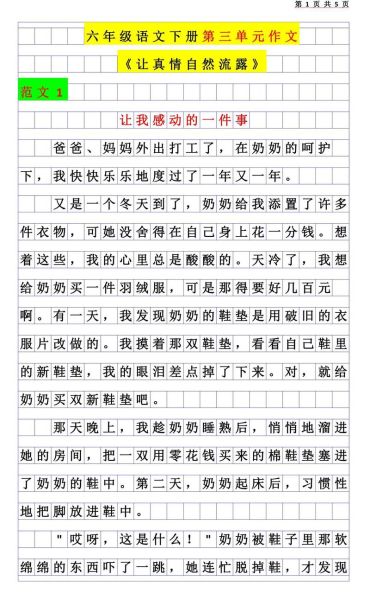 第 1 页 共 5 页
六年级语文下册第三单元作文
《让真情自然流露》
范文 1
让我感动的一件事
爸爸、妈妈外出打工了，在奶奶的呵护
下，我快快乐乐地度过了一年又一年。
又是一个冬天到了，奶奶给我添置了许多
件衣物，可她没舍得在自己身上花一分钱。想
着这些，我的心里总是酸酸的。天冷了，我想
给奶奶买一件羽绒服，可是那得要好几百元
啊。有一天，我发现奶奶的鞋垫是用破旧的衣
服片改做的。我摸着那双鞋垫，看看自己鞋里
的新鞋垫，我的眼泪差点掉了下来。对，就给
奶奶买双新鞋垫吧。
那天晚上，我趁奶奶睡熟后，悄悄地溜进
她的房间，把一双用零花钱买来的棉鞋垫塞进
了奶奶的鞋中。第二天，奶奶起床后，习惯性
地把脚放进鞋中。
"哎呀，这是什么！"奶奶被鞋子里那软
绵绵的东西吓了一跳，她连忙脱掉鞋，才发现